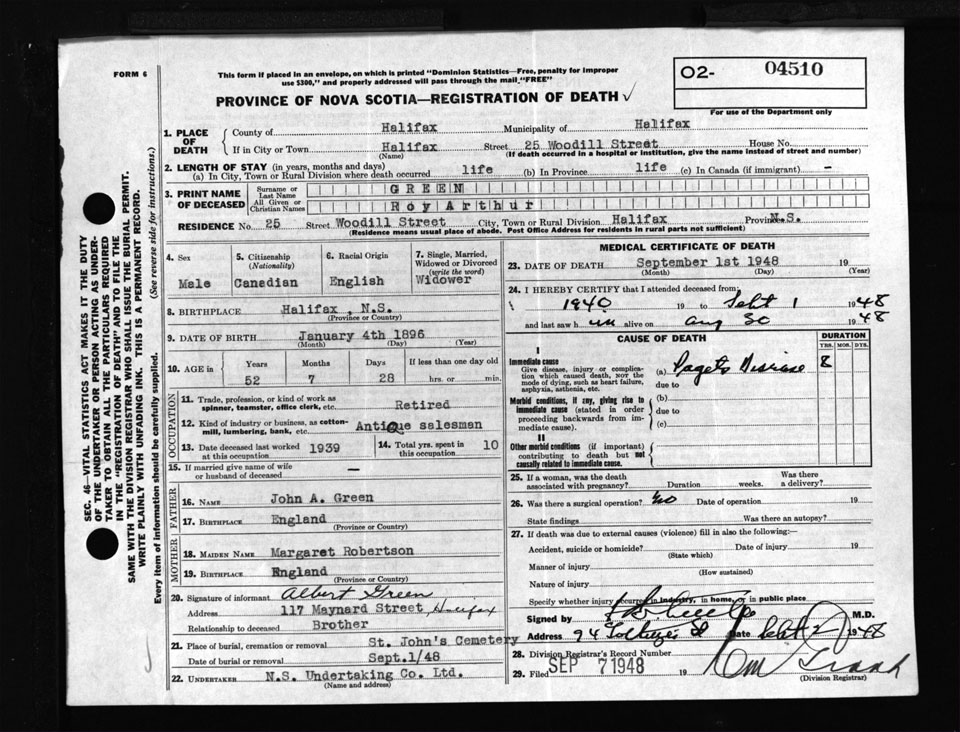 FORM 6
This form if placed in an envelope, on which is printed "Dominion Statistics—Free, penalty for improper
use $300," and properly addressed will pass through the mail "FREE"
PROVINCE OF NOVA SCOTIA—REGISTRATION OF DEATH ✓
O2- 04510
For use of the Department only
SEC. 46—VITAL STATISTICS ACT MAKES IT THE DUTY
OF THE UNDERTAKER OR PERSON ACTING AS UNDER-
TAKER TO OBTAIN ALL THE PARTICULARS REQUIRED
IN THE "REGISTRATION OF DEATH" AND TO FILE THE
SAME WITH THE DIVISION REGISTRAR WHO SHALL ISSUE THE BURIAL PERMIT.
WRITE PLAINLY WITH UNFADING INK. THIS IS A PERMANENT RECORD.
Every item of information should be carefully supplied. (See reverse side for instructions.)
1. PLACE OF DEATH
County of Halifax Municipality of Halifax
If in City or Town Halifax Street 25 Woodill Street House No.
(Name) (If death occurred in a hospital or institution, give the name instead of street and number)
2. LENGTH OF STAY (in years, months and days)
(a) In City, Town or Rural Division where death occurred life (b) In Province life (c) In Canada (if immigrant) -
3. PRINT NAME OF DECEASED
Surname or Last Name GREEN
All Given or Christian Names Roy Arthur
RESIDENCE No. 25 Street Woodill Street City, Town or Rural Division Halifax Province N.S.
(Residence means usual place of abode. Post Office Address for residents in rural parts not sufficient)
4. Sex
Male
5. Citizenship
(Nationality)
Canadian
6. Racial Origin
English
7. Single, Married,
Widowed or Divorced
(write the word)
Widower
8. BIRTHPLACE Halifax, N.S.
(Province or Country)
9. DATE OF BIRTH January 4th 1896
(Month) (Day) (Year)
10. AGE in
Years Months Days If less than one day old
52 7 28 hrs. or min.
OCCUPATION
11. Trade, profession, or kind of work as
spinner, teamster, office clerk, etc. Retired
12. Kind of industry or business, as cotton-
mill, lumbering, bank, etc. Antique salesman
13. Date deceased last worked
at this occupation 1939
14. Total yrs. spent in
this occupation 10
15. If married give name of wife
or husband of deceased —
FATHER
16. NAME John A. Green
17. BIRTHPLACE England
(Province or Country)
MOTHER
18. MAIDEN NAME Margaret Robertson
19. BIRTHPLACE England
(Province or Country)
20. Signature of informant Albert Green
Address 117 Maynard Street, Halifax
Relationship to deceased Brother
21. Place of burial, cremation or removal St. John's Cemetery
Date of burial or removal Sept.1/48
22. UNDERTAKER N.S. Undertaking Co. Ltd.
(Name and address)
MEDICAL CERTIFICATE OF DEATH
23. DATE OF DEATH September 1st 1948 19
(Month) (Day) (Year)
24. I HEREBY CERTIFY that I attended deceased from:
1940 19 to Sept 1 1948
and last saw h im alive on Aug 30 1948
CAUSE OF DEATH
DURATION
YRS. MOS. DYS.
I
Immediate cause
Give disease, injury or complica-
tion which caused death, NOT the
mode of dying, such as heart failure,
asphyxia, asthenia, etc.
(a) Pagets Disease 8
due to
Morbid conditions, if any, giving rise to
immediate cause (stated in order
proceeding backwards from im-
mediate cause).
(b)
due to
(c)
II
Other morbid conditions (if important)
contributing to death but not
causally related to immediate cause.
25. If a woman, was the death
associated with pregnancy? Duration weeks. Was there
a delivery?
26. Was there a surgical operation? No Date of operation 19
State findings Was there an autopsy?
27. If death was due to external causes (violence) fill in also the following:—
Accident, suicide or homicide? Date of injury 19
(State which)
Manner of injury
(How sustained)
Nature of injury
Specify whether injury occurred in industry, in home, or in public place
Signed by M.D.
Address 94 St Date Sept 2 1948
28. Division Registrar's Record Number
29. Filed SEP 7 1948 19
(Division Registrar)